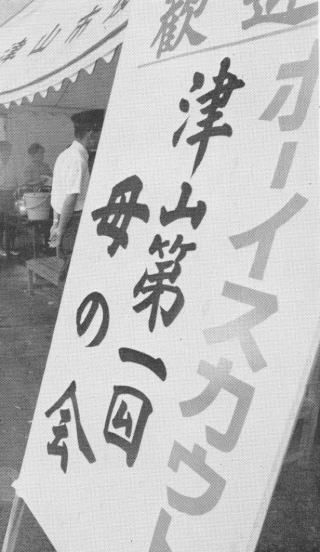 津山市
歓迎
ボーイスカウト
津山第一団
母の会